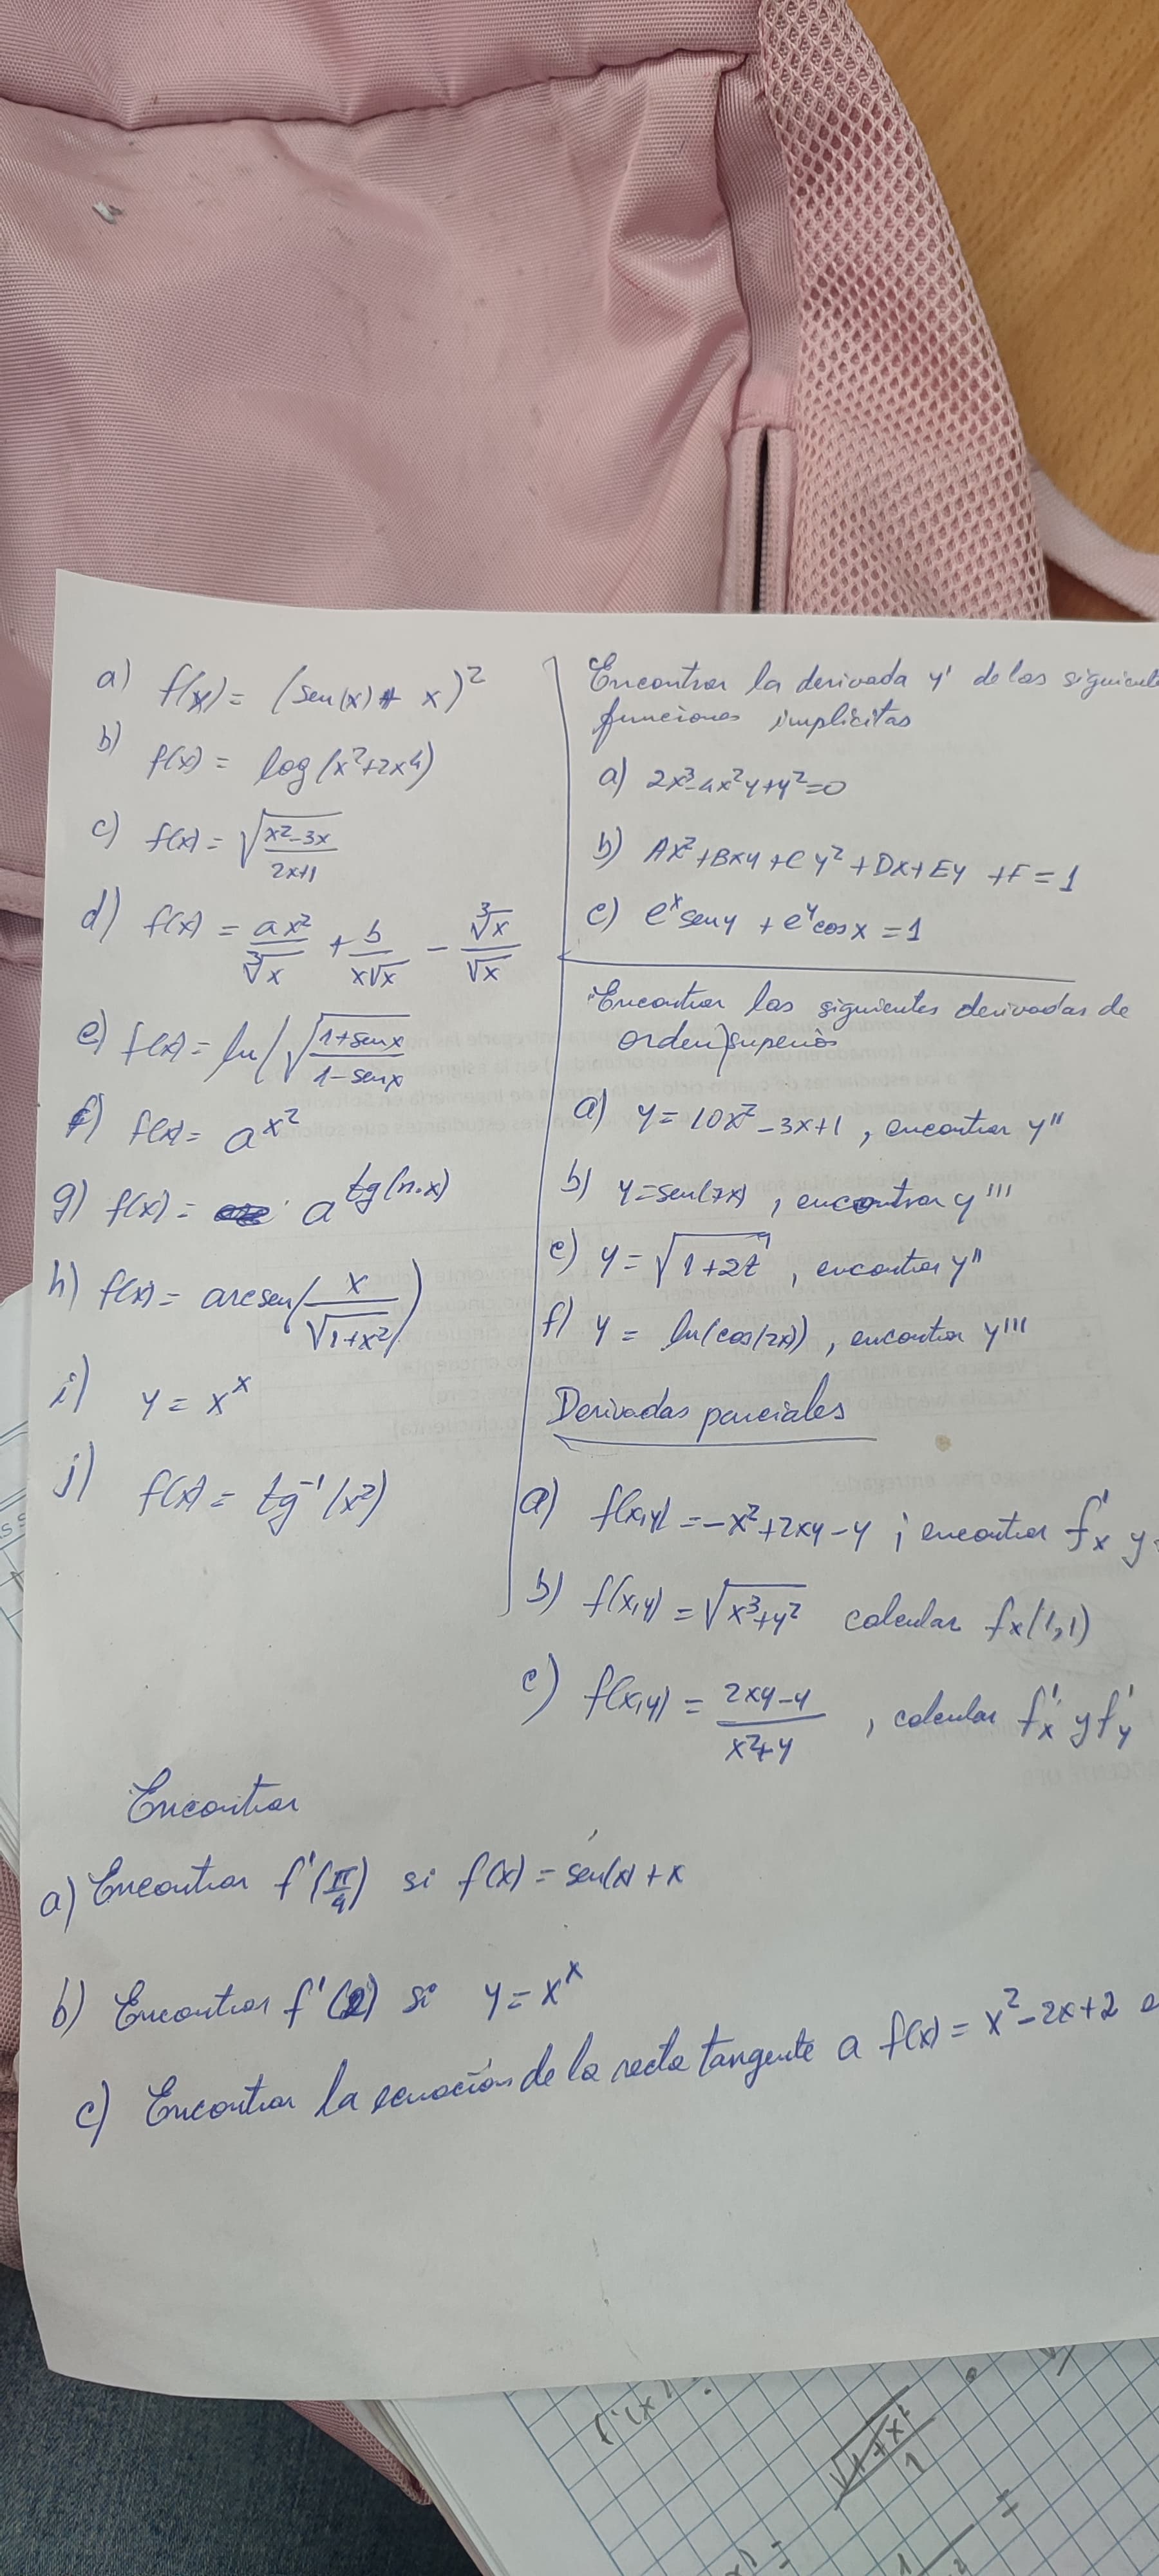 a) f(x) = (sen(x) + x)²
b) f(x) = log(x²+2x⁴)
c) f(x) = √((x²-3x)/(2x+1))
d) f(x) = ax²/∛x + b/(x√x) - ∛x/√x
e) f(x) = ln(√((1+senx)/(1-senx))
f) f(x) = a^x²
g) f(x) = a^tg(n·x)
h) f(x) = arcsen(x/√(1+x²))
i) y = x^x
j) f(x) = tg⁻¹(x²)
Encontrar la derivada y' de las
funciones implicitas
a) 2x³-4x²y+y²=0
b) Ax²+Bxy+Cy²+Dx+Ey+F=1
c) e^x seny + e^y cosx = 1
Encontrar las siguientes derivadas de
orden superior
a) y = 10x²-3x+1, encontrar y''
b) y=sen(7x), encontrar y'''
c) y = √(1+2t), encontrar y''
f) y = ln(cos(2x)), encontrar y'''
Derivadas parciales
a) f(x,y) = -x²+2xy-y; encontrar f'x y
b) f(x,y) = √(x³+y²) calcular fx(1,1)
c) f(x,y) = (2xy-y)/(x²+y), calcular f'x y f'y
Encontrar
a) Encontrar f'(π/4) si f(x) = sen(x)+x
b) Encontrar f'(2) si y = x^x
c) Encontrar la ecuación de la recta tangente a f(x) = x²-2x+2